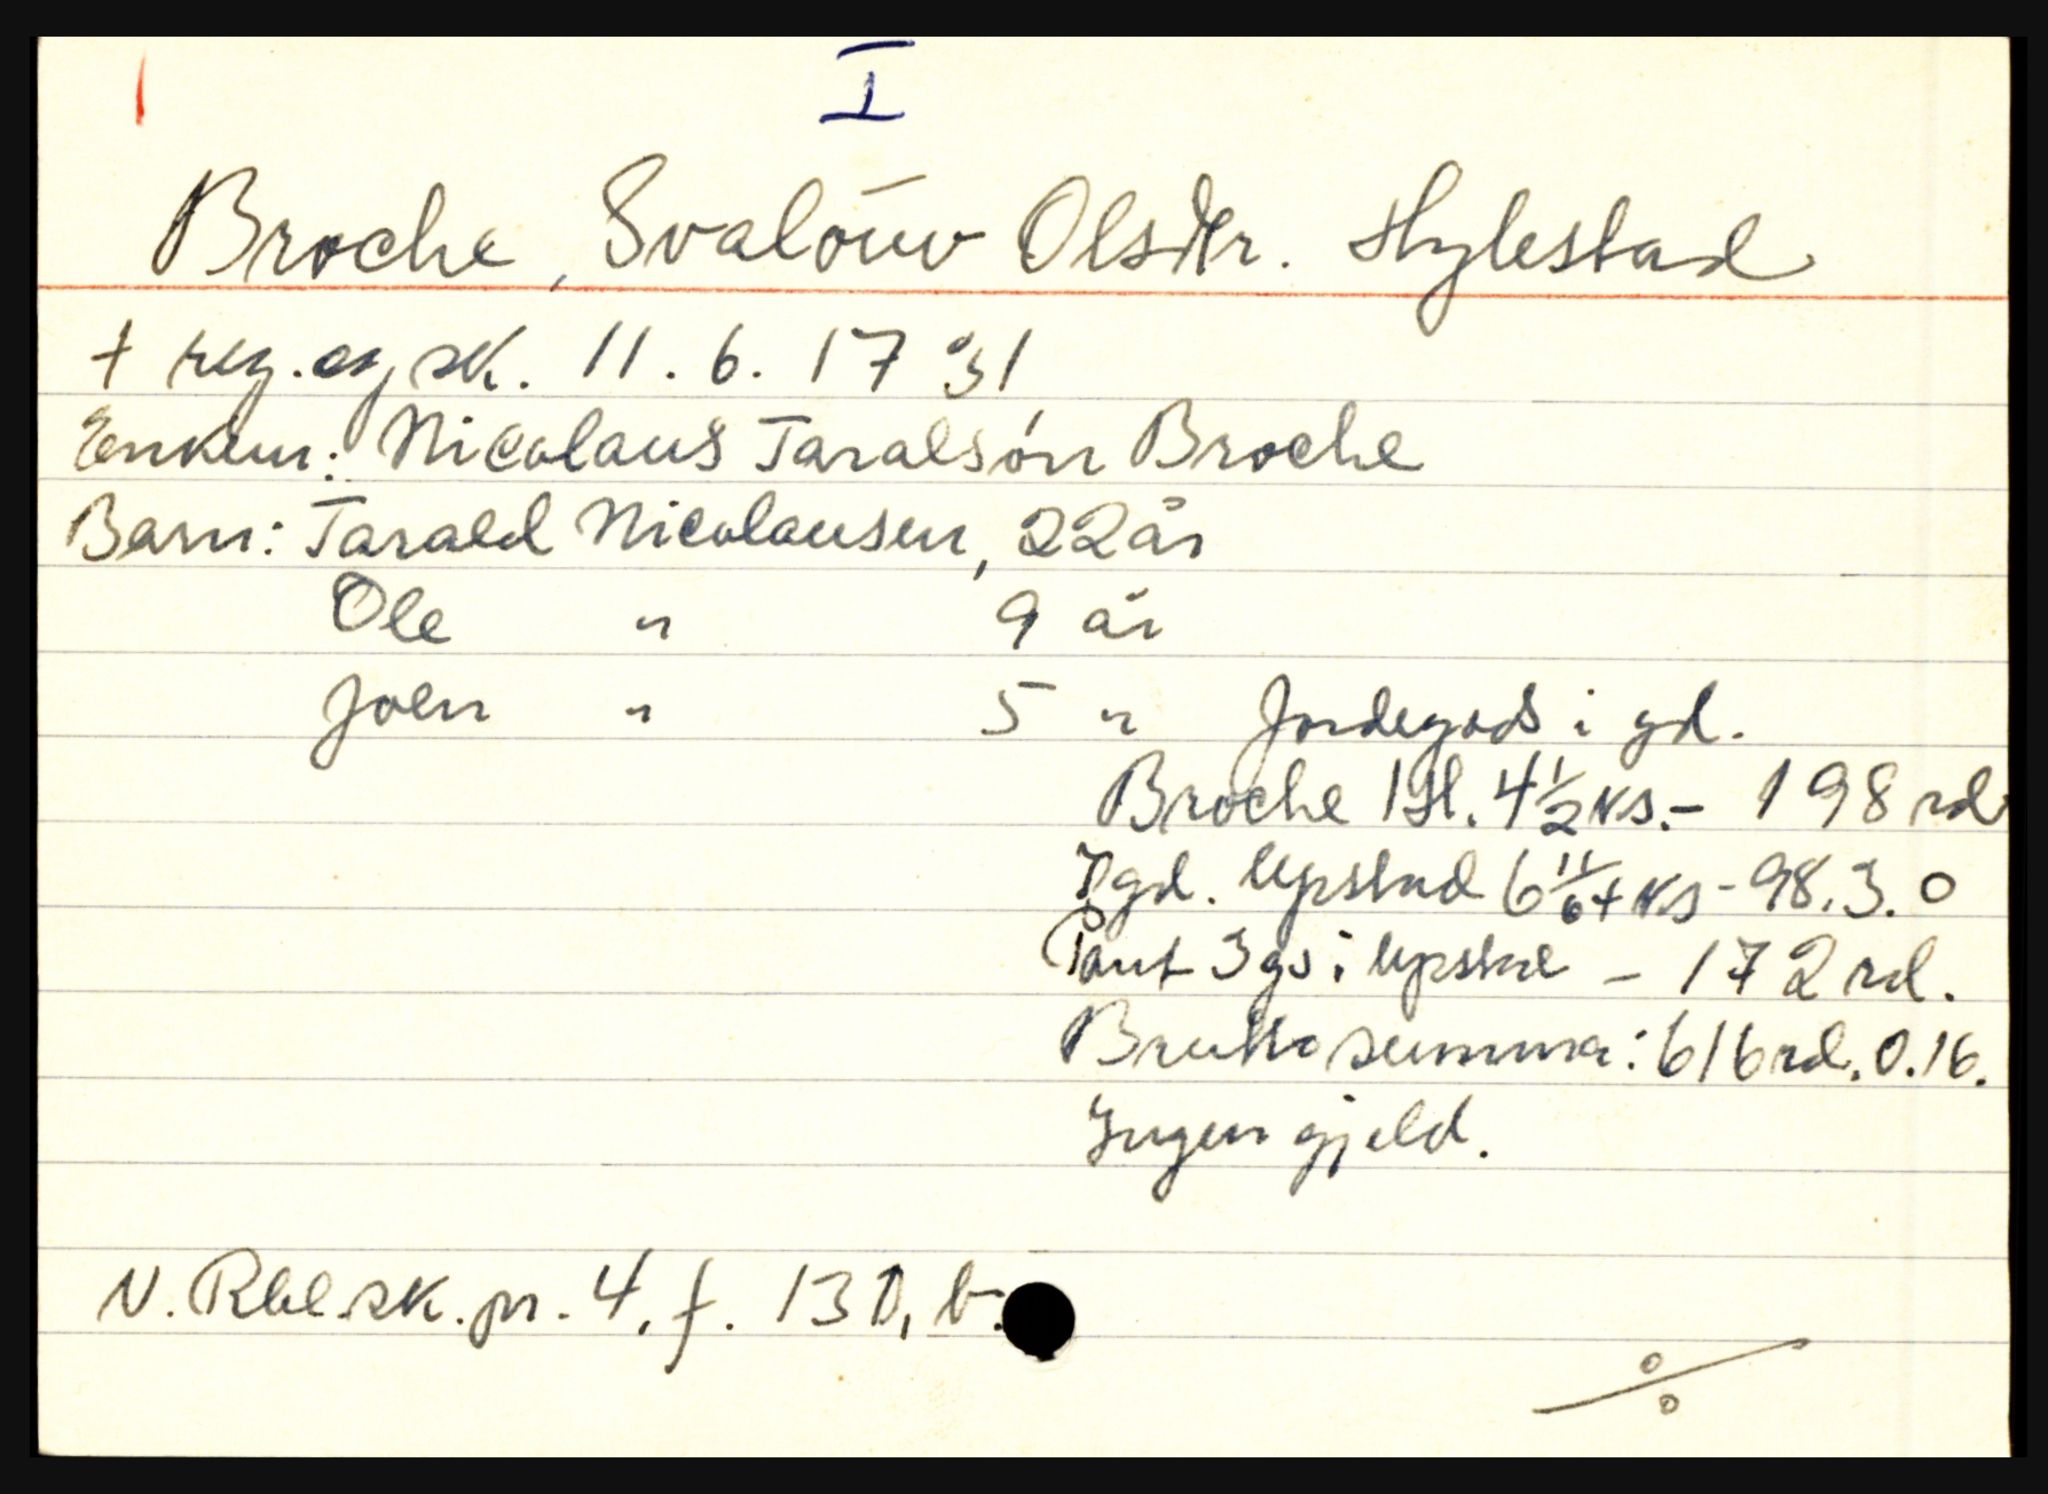 I
Broche, Svalouv Olsdtr. Hylestad
† reg. og sk. 11. 6. 1731
Enkem: Nicolaus Taralsón Broche
Barn: Tarald Nicolausen, 22 år
Ole " 9 år
Joen " 5 " Jordegods i gd.
Broche 1 sl. 4 1/2 ks. - 198 rd
I gd. Upstad 6 11/64 ks - 98. 3. 0
Pant 3 gs i Upstad - 172 rd.
Brutto summa: 616 rd. 0. 16.
Ingen gjeld.
N. Rbl. sk. pr. 4, f. 130, b.